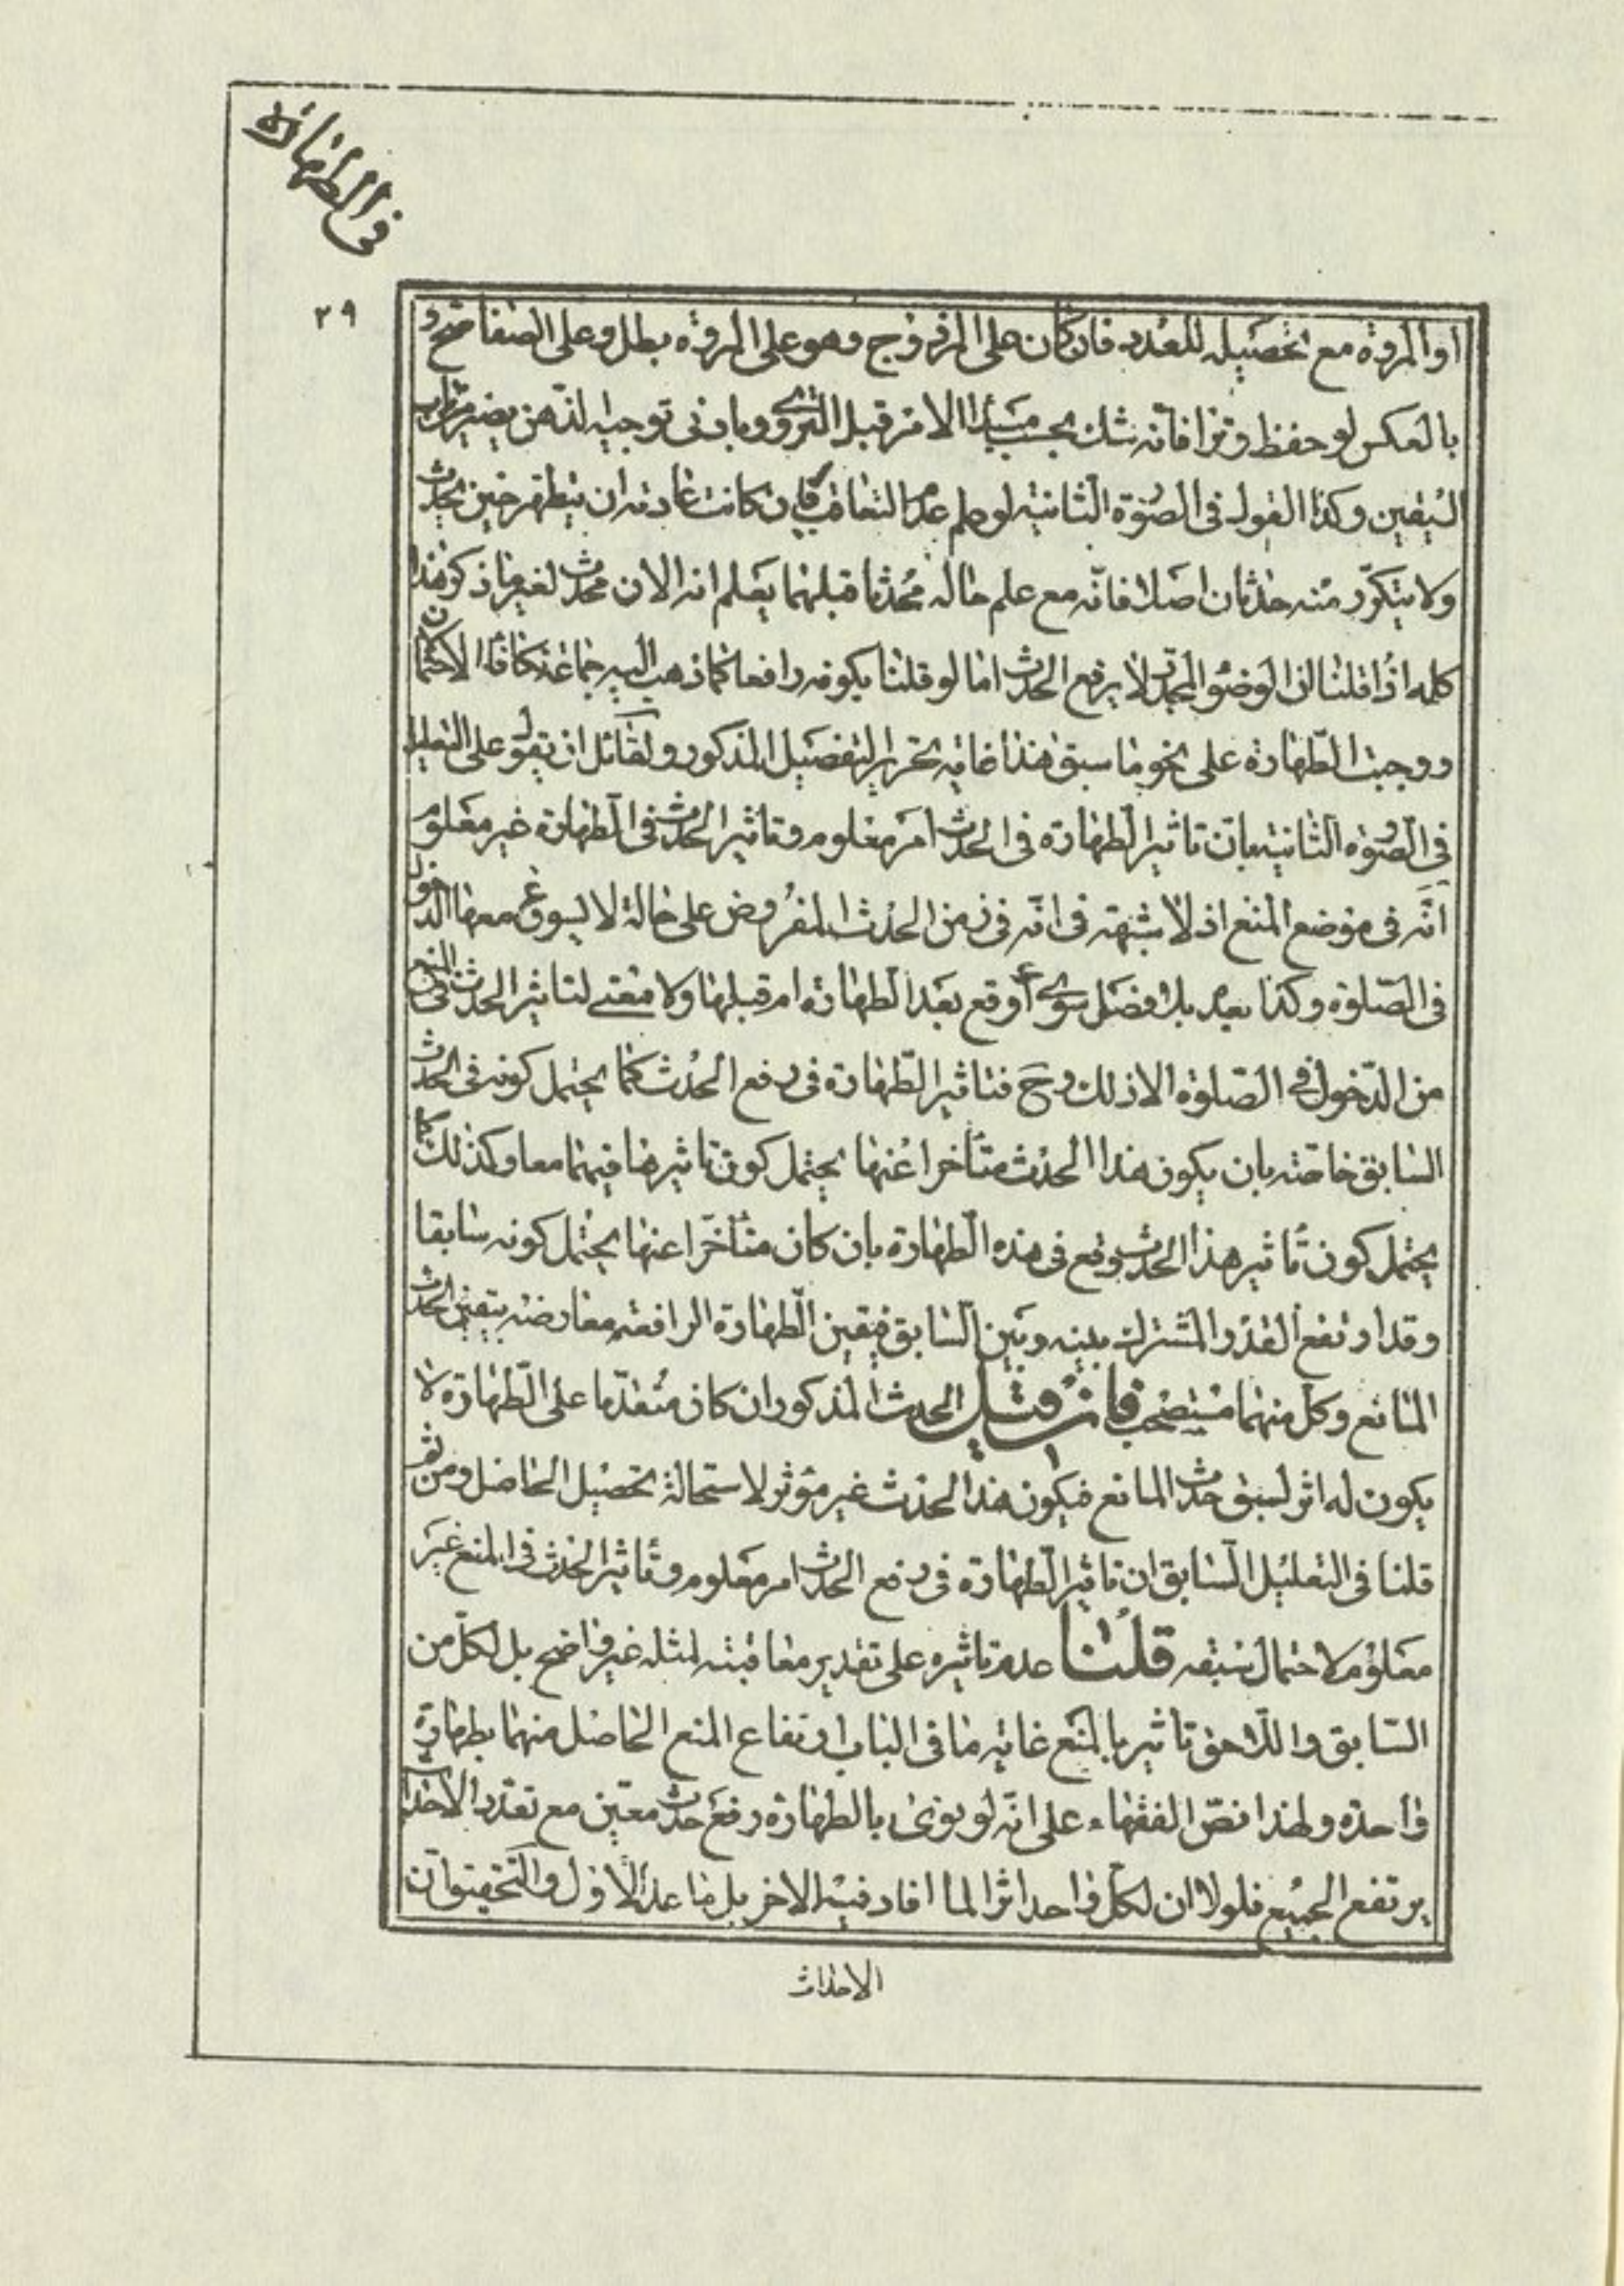 في الطهارة
٢٩
او المروة مع تحصيله للعدد فان كان على المزدوج وهو على المروة بطل وعلى الصفا صح و
بالعكس لو حفظ وترا فانه شك بحسب مبدا الامر قبل التروي وبادنى توجيه الذهن يصير من باب
اليقين وكذا القول في الصورة الثانية لو علم عدم التعاقب فان كانت عادته ان يتطهر حين يحدث
ولا يتكرر منه حدثان اصلا فانه مع علم حاله محدثا قبلهما يعلم انه الان محدث لغير ما ذكر وهذا
كله اذا قلنا ان الوضوء المجدد لا يرفع الحدث اما لو قلنا بكونه رافعا كما ذهب اليه جماعة تكافأ الاحتمالان
ووجبت الطهارة على نحو ما سبق هذا غاية تحرير التفصيل المذكور ولقائل ان يقول على التعليل
في الصورة الثانية بان تاثير الطهارة في الحدث امر معلوم وتاثير الحدث في الطهارة غير معلوم
انه في موضع المنع اذ لا شبهة في انه في زمن الحدث المفروض على حالة لا يسوغ معها الدخول
في الصلوة وكذا بعده بلا فصل سواء أوقع بعد الطهارة ام قبلها ولا معنى لتاثير الحدث في المنع
من الدخول في الصلوة الا ذلك وح فتاثير الطهارة في رفع الحدث كما يحتمل كونه في الحدث
السابق خاصة بان يكون هذا الحدث متأخرا عنها يحتمل كون تاثيرها فيهما معا وكذلك كما
يحتمل كون تاثير هذا الحدث وقع في هذه الطهارة بان كان متأخرا عنها يحتمل كونه سابقا
وقد ارتفع القدر المشترك بينه وبين السابق فيقين الطهارة الرافعة معارضة بيقين الحدث
المانع وكل منهما مستصحب فان قيل الحدث المذكور ان كان متقدما على الطهارة لا
يكون له اثر لسبق حدث المانع فيكون هذا الحدث غير مؤثر لاستحالة تحصيل الحاصل ومن ثم
قلنا في التعليل السابق ان تاثير الطهارة في رفع الحدث امر معلوم وتأثير الحدث في المنع غير
معلوم لاحتمال سبقه قلنا عدم تاثيره على تقدير معاقبته لمثله غير واضح بل لكل من
السابق واللاحق تاثير بالمنع غاية ما في الباب ارتفاع المنع الحاصل منهما بطهارة
واحدة ولهذا نص الفقهاء على انه لو نوى بالطهارة رفع حدث معين مع تعدد الاحداث
يرتفع الجميع فلولا ان لكل واحد اثرا لما افاد نية الاخر بل ما عدا الاول والتحقيق ان
الاحداث